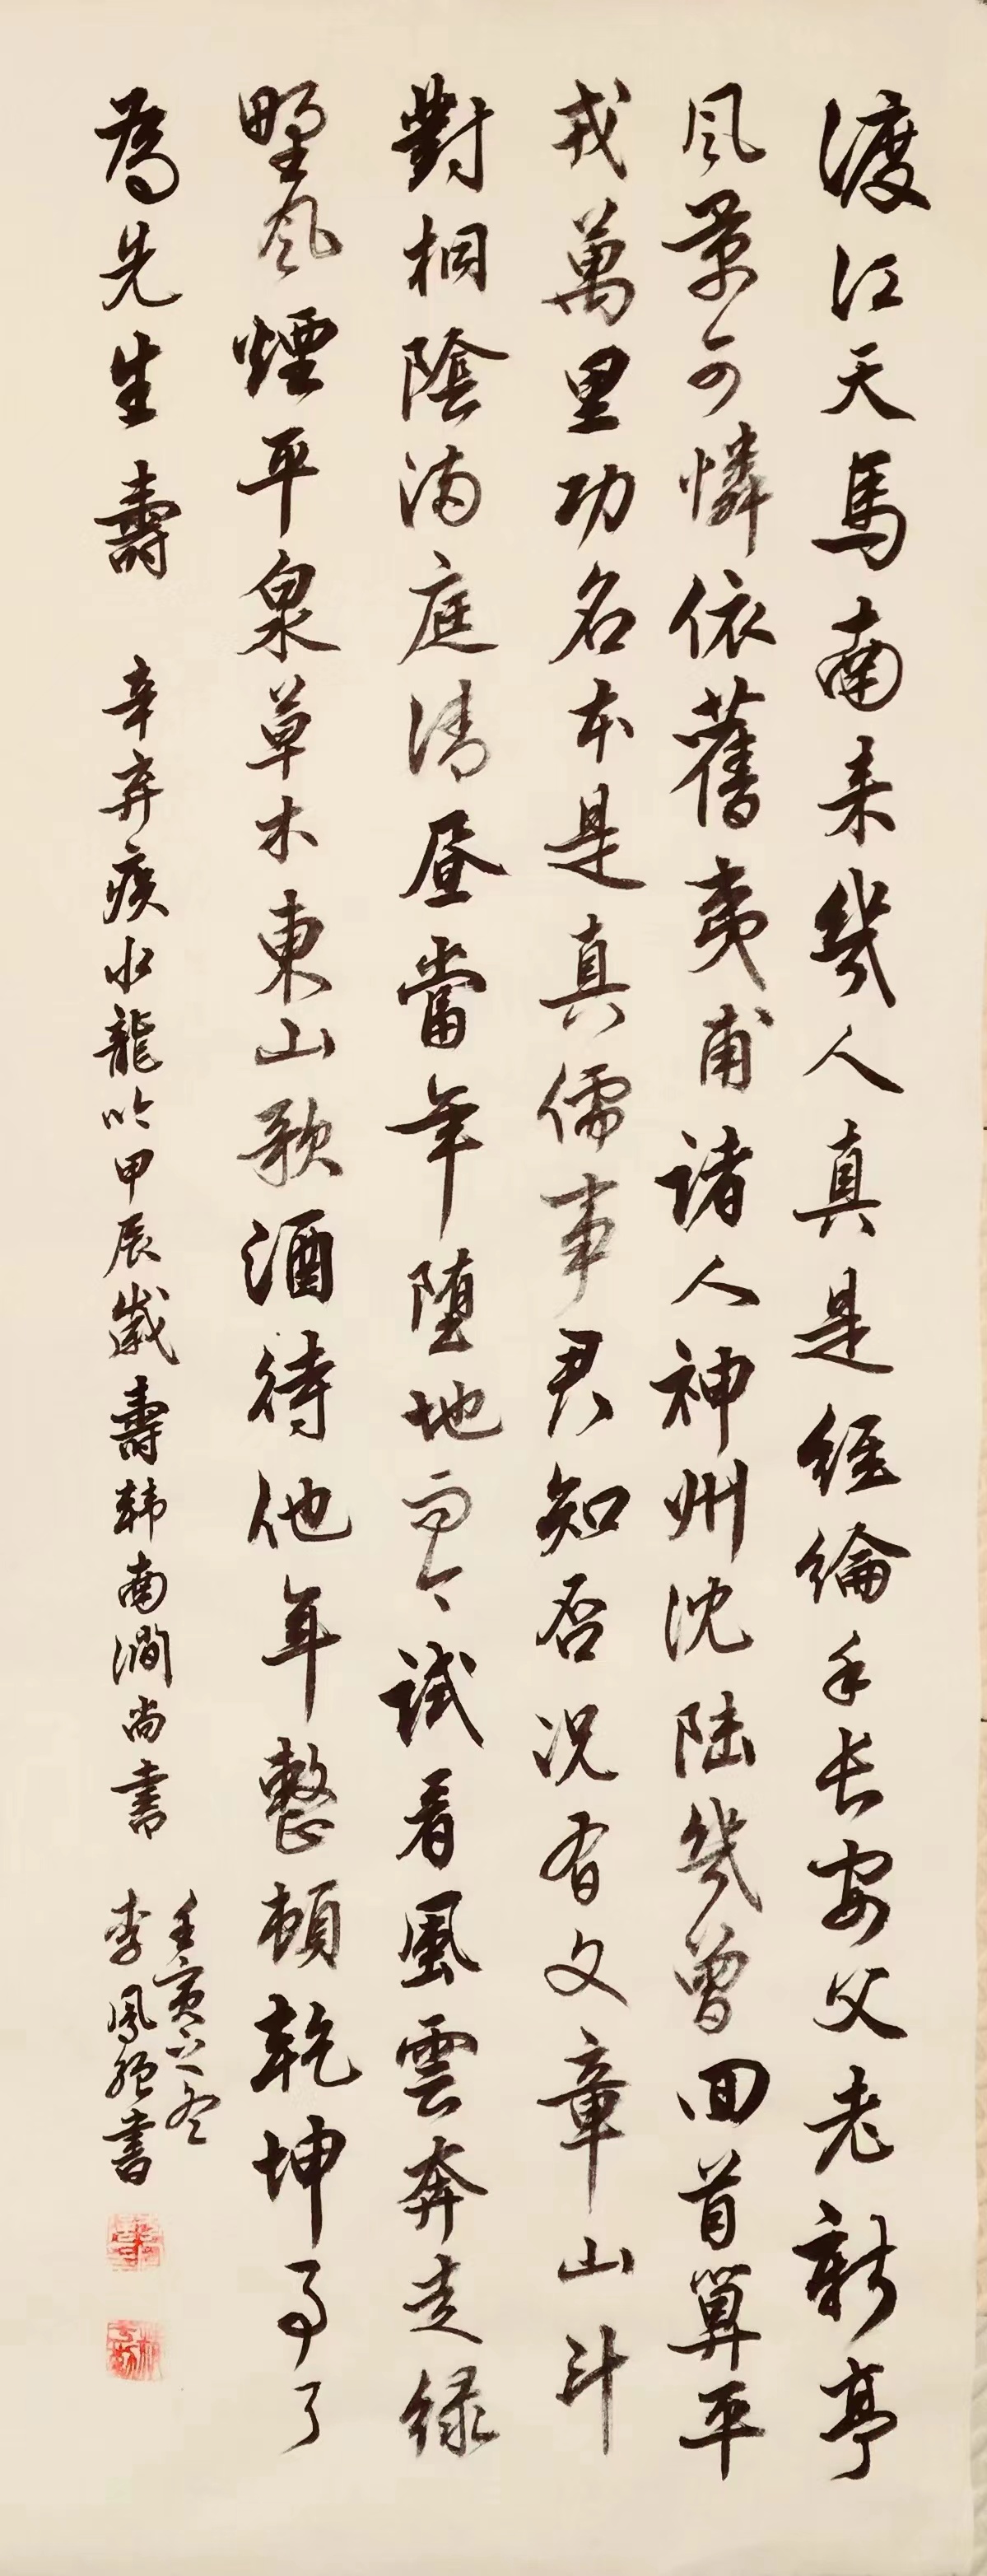 渡江天馬南来幾人真是經綸手長安父老新亭
風景可憐依舊夷甫諸人神州沈陸幾曾回首算平
戎萬里功名本是真儒事君知否況有文章山斗
對桐陰滿庭清晝當年墮地而今試看風雲奔走綠
野風煙平泉草木東山歌酒待他年整頓乾坤事了
為先生壽 辛弃疾水龍吟甲辰歲壽韩南澗尚書
壬寅之冬
李鳳強書